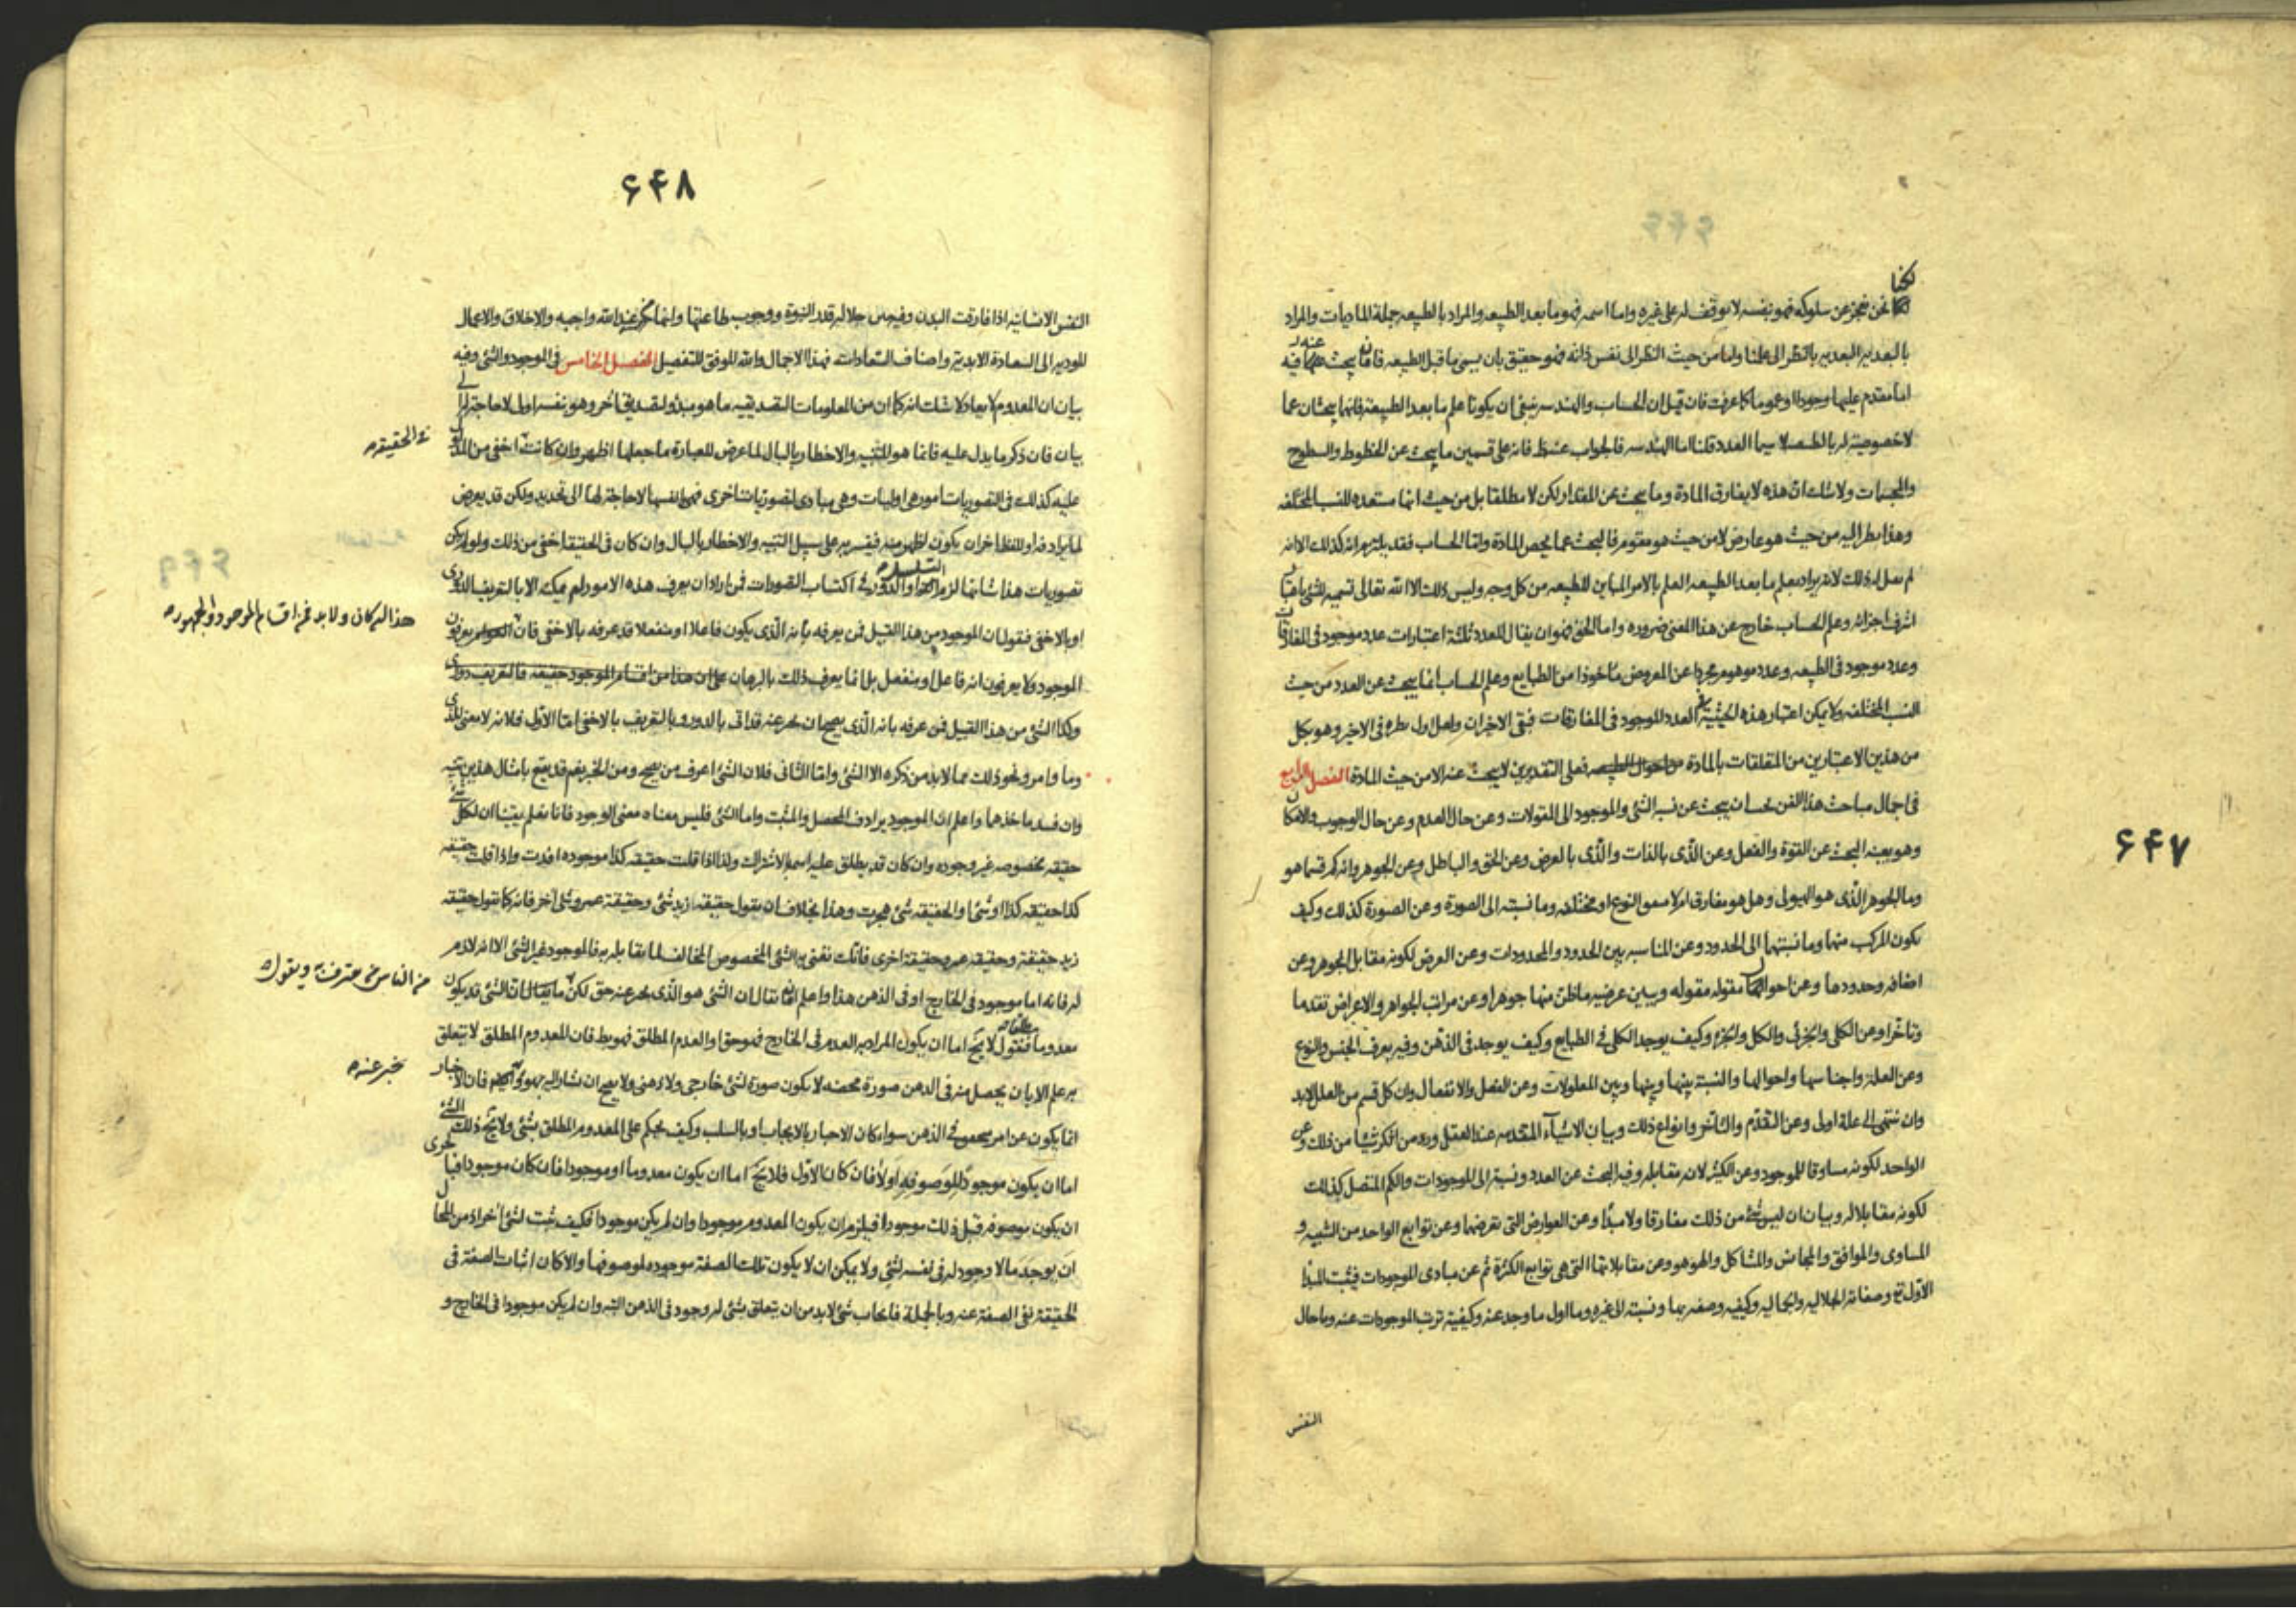 ۶۴۷
لكنا
نحن نعجز عن سلوكه فهو بنفسه لا توقف له على غيره واما اسمه فهو ما بعد الطبيعه والمراد بالطبيعه جملة الماديات والمراد
بالبعديه البعديه بالنظر الى علمنا واما من حيث النظر الى نفس ذاته فهو حقيق بان يسمى ما قبل الطبيعه فان ما يبحث عنه فيه
اما مقدم عليها وجودا او عموما كما عرفت فان قيل ان الحساب والهندسه ينبغى ان يكونا علم ما بعد الطبيعة فانهما يبحثان عما
لا خصوصية له بالطبيعه لا سيما العدد قلنا اما الهندسه فالجواب عنه ظ فانه على قسمين ما يبحث عن الخطوط والسطوح
والمجسمات ولا شك ان هذه لا يفارق المادة وما يبحث عن المقدار لكن لا مطلقا بل من حيث انها مستعده للنسب المختلفه
وهذا نظر اليه من حيث هو عارض لا من حيث هو مقوم فالبحث عما يخص المادة واما الحساب فقد يلتزم انه كذلك الا انه
لم يقل له ذلك لانه يراد بعلم ما بعد الطبيعه العلم بالامر المباين للطبيعه من كل وجه وليس ذلك الا الله تعالى تسمية للشئ باعتبار
اشرف اجزائه وعلم الحساب خارج عن هذا المعنى ضروره واما الحق فهو ان يقال للعدد ثلثة اعتبارات عدد موجود فى المفارقات
وعدد موجود فى الطبيعه وعدد موهوم مجردا عن المعروض مأخوذا من الطبايع وعلم الحساب انما يبحث عن العدد من حيث
النسب المختلفه ولا يمكن اعتبار هذه الحيثية فى العدد الموجود فى المفارقات فبقى الاخران ولعل اول نظره فى الاخير وهو بكل
من هذين الاعتبارين من المتعلقات بالمادة فعلى التقديرين لا يبحث عنه الا من حيث المادة الفصل الرابع
فى اجمال مباحث هذا الفن يحسان يبحث عن نسبة الشئ والموجود الى المقولات وعن حال العدم وعن حال الوجوب والامكان
وهو بعينه البحث عن القوة والفعل وعن الذى بالذات والذى بالعرض وعن الحق والباطل وعن الجوهر وانه كم قسما هو
وما الجوهر الذى هو الهيولى وهل هو مفارق ام لا متفق النوع او مختلفه وما نسبته الى الصورة وعن الصورة كذلك وكيف
يكون المركب منهما وما نسبتهما الى الحدود وعن المناسبه بين الحدود والمحدودات وعن العرض لكونه مقابل الجوهر وعن
اصنافه وحدودها وعن احوال مقوله مقوله وبين عرضيه ما ظن منها جوهرا وعن مراتب الجواهر والاعراض تقدما
وتأخرا وعن الكلى والجزئى والكل والجزء وكيف يوجد الكلى فى الطبايع وكيف يوجد فى الذهن وفيه يعرف الجنس والنوع
وعن العلة واجناسها واحوالها والنسبة بينها وبينها وبين المعلولات وعن الفعل والانفعال وان كل قسم من العلل لابد
وان ينتهى الى علة اولى وعن التقدم والتأخر وانواع ذلك وبيان الاشيآء المتقدمه عند العقل ورد من انكر شيئا من ذلك وعن
الواحد لكونه مساوقا للموجود وعن الكثير لانه مقابله وفيه البحث عن العدد ونسبته الى الموجودات والكم المتصل كذلك
لكونه مقابلا له وبيان ان ليس شئ من ذلك مفارقا ولا مبدأ وعن العوارض التى تعرضها وعن توابع الواحد من الشبيه و
المساوى والموافق والمجانس والمشاكل والهو هو وعن مقابلاتها التى هى توابع الكثرة ثم عن مبادى الموجودات فيثبت المبدأ
الاول تع وصفاته الجلاليه والجماليه وكيفيه وصفه بها ونسبته الى غيره وما اول ما وجد عنه وكيفية ترتب الموجودات عنه وما حال
النفس
۶۴۸
النفس الانسانيه اذا فارقت البدن وفيه بين جلاله قدر النبوة ووجوب طاعتها وانها من عند الله واجبه والاخلاق والاعمال
المودية الى السعادة الابدية واصناف السعادات فهذا الاجمال والله الموفق للتفصيل الفصل الخامس فى الموجود والشئ وفيه
بيان ان المعدوم لا يعاد لا شك انه كما ان من المعلومات التصديقيه ما هو مبدأ لتصديق آخر وهو بنفسه اول لا حاجة له الى
بيان فان ذكر ما يدل عليه فانما هو للتنبيه والاخطار بالبال لما عرض للعبارة ما جعلها اظهر وان كانت اخفى من المدلول
فى الحقيقة ه
عليه كذلك فى التصوريات امور هى اوليات وهى مبادى لتصوريات اخرى فهى انفسها لا حاجة لها الى تحديد ولكن قد يعرض
لما يرادفه او للفظ آخر ان يكون اظهر منه فيفسر به على سبيل التنبيه والاخطار بالبال وان كان فى الحقيقة اخفى من ذلك ولو لم يكن
تصوريات هذا شانها لزم التسلسل او الدور فى اكتساب التصورات فمن اراد ان يعرف هذه الامور لم يمكنه الا بالتعريف الدورى
او بالاخفى فنقول ان الموجود من هذا القبيل فمن يعرفه بأنه الذى يكون فاعلا او منفعلا قد عرفه بالاخفى فان يعرفون
هذا ان كان ولا بد فمن اقسام الموجود والجمهور ه
الموجود ولا يعرفون انه فاعل او منفعل بل انما يعرف ذلك بالبرهان على ان هذا من اقسام الموجود حقيقه فالتعريف دورى
وكذا الشئ من هذا القبيل فمن عرفه بانه الذى يصح ان يخبر عنه قد اتى بالدور وبالتعريف بالاخفى اما الاول فلانه لا معنى للذى
وما وامر ونحو ذلك مما لا بد من ذكره الا الشئ واما الثانى فلان الشئ اعرف من يصح ومن الخبر نعم قد يقع بامثال هذين تنبيه
وان فسد ماخذها واعلم ان الموجود يرادف المحصل والمثبت واما الشئ فليس معناه معنى الوجود فانا نعلم يقينا ان لكل شئ
حقيقه مخصوصه غير وجوده وان كان قد يطلق عليه اسمه بالاشتراك ولذا اذا قلت حقيقه كذا موجوده افدت واذا قلت حقيقه
كذا حقيقه كذا او شئ او الحقيقه شئ هجرت وهذا بخلاف ان يقول حقيقه زيد شئ وحقيقة عمرو شئ آخر فانه كما تقول حقيقة
زيد حقيقة وحقيقه عمرو حقيقة اخرى فانك تعنى به الشئ المخصوص المخالف لما يقابله به فالموجود غير الشئ الا انه لازم
له فانه اما موجود فى الخارج او فى الذهن هذا واعلم انه يقال ان الشئ هو الذى يخبر عنه حق لكن ما يقال ان الشئ قد يكون
من الناس من يعترف به ويقول ه
معدوما مطلقا فنقول لا يخ اما ان يكون المراد به العدم فى الخارج فهو حق او العدم المطلق فهو بط فان المعدوم المطلق لا يتعلق
به علم الا بان يحصل منه فى الذهن صورة محضه لا يكون صورة لشئ خارجى ولا ذهنى ولا يصح ان يشار اليه بهو فان الاخبار
يخبر عنه ه
انما يكون عن امر فى الذهن سواء كان الاخبار بالايجاب او بالسلب وكيف يحكم على المعدوم المطلق بشئ ولا يخ ذلك الشئ
اما ان يكون موجودا لموصوفه او لا فان كان الاول فلا يخ اما ان يكون معدوما او موجودا فان كان موجودا فبالحرى
ان يكون موصوفه قبل ذلك موجودا فيلزم ان يكون المعدوم موجودا وان لم يكن موجودا فكيف يثبت لشئ آخر اذ من المحال
ان يوجد ما لا وجود له فى نفسه لشئ ولا يمكن ان لا يكون تلك الصفة موجوده لموصوفها والا كان اثبات الصفة فى
الحقيقة نفى الصفة عنه وبالجملة فايجاب شئ لابد من ان يتعلق بشئ له وجود فى الذهن البته وان لم يكن موجودا فى الخارج و